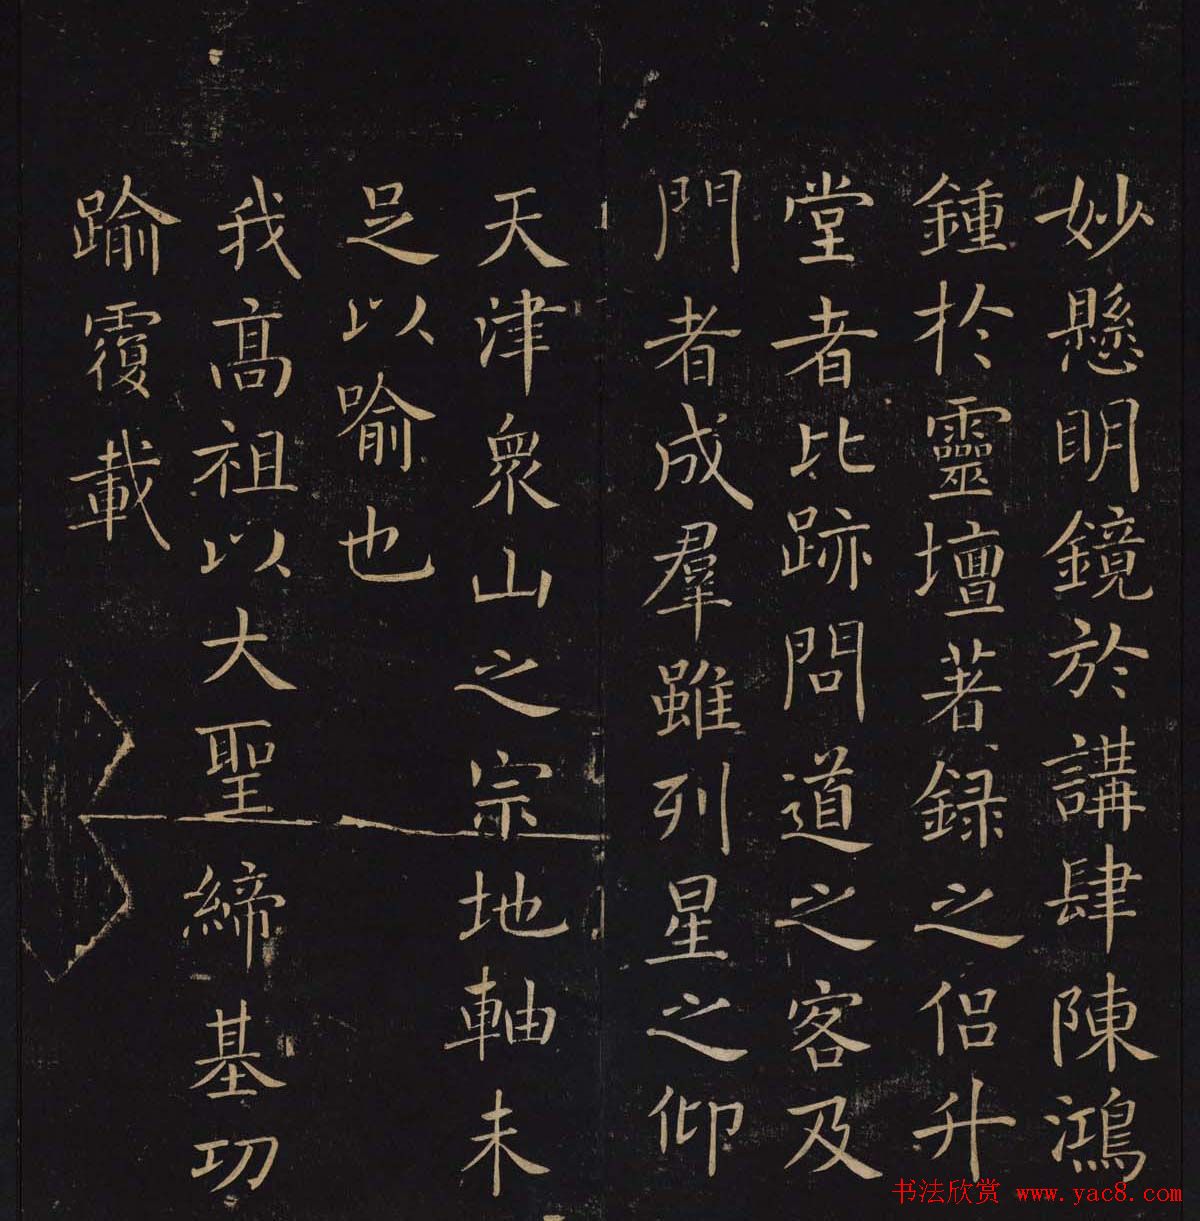 妙懸明鏡於講肆陳鴻
鍾於靈壇著録之侣升
堂者比跡問道之客及
門者成羣雖列星之仰
天津衆山之宗地軸未
足以喻也
我髙祖以大聖締基功
踰覆載
书法欣赏 www.yac8.com